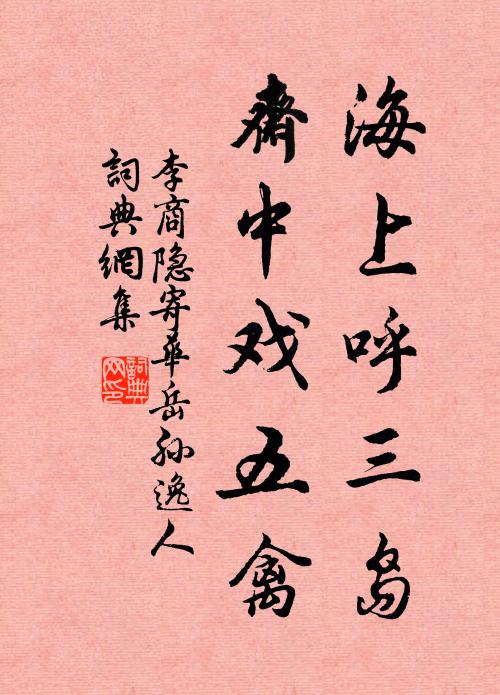 海上呼三岛
齋中戏五禽
李商隐寄華岳孙逸人
詞典網集
詞典網印